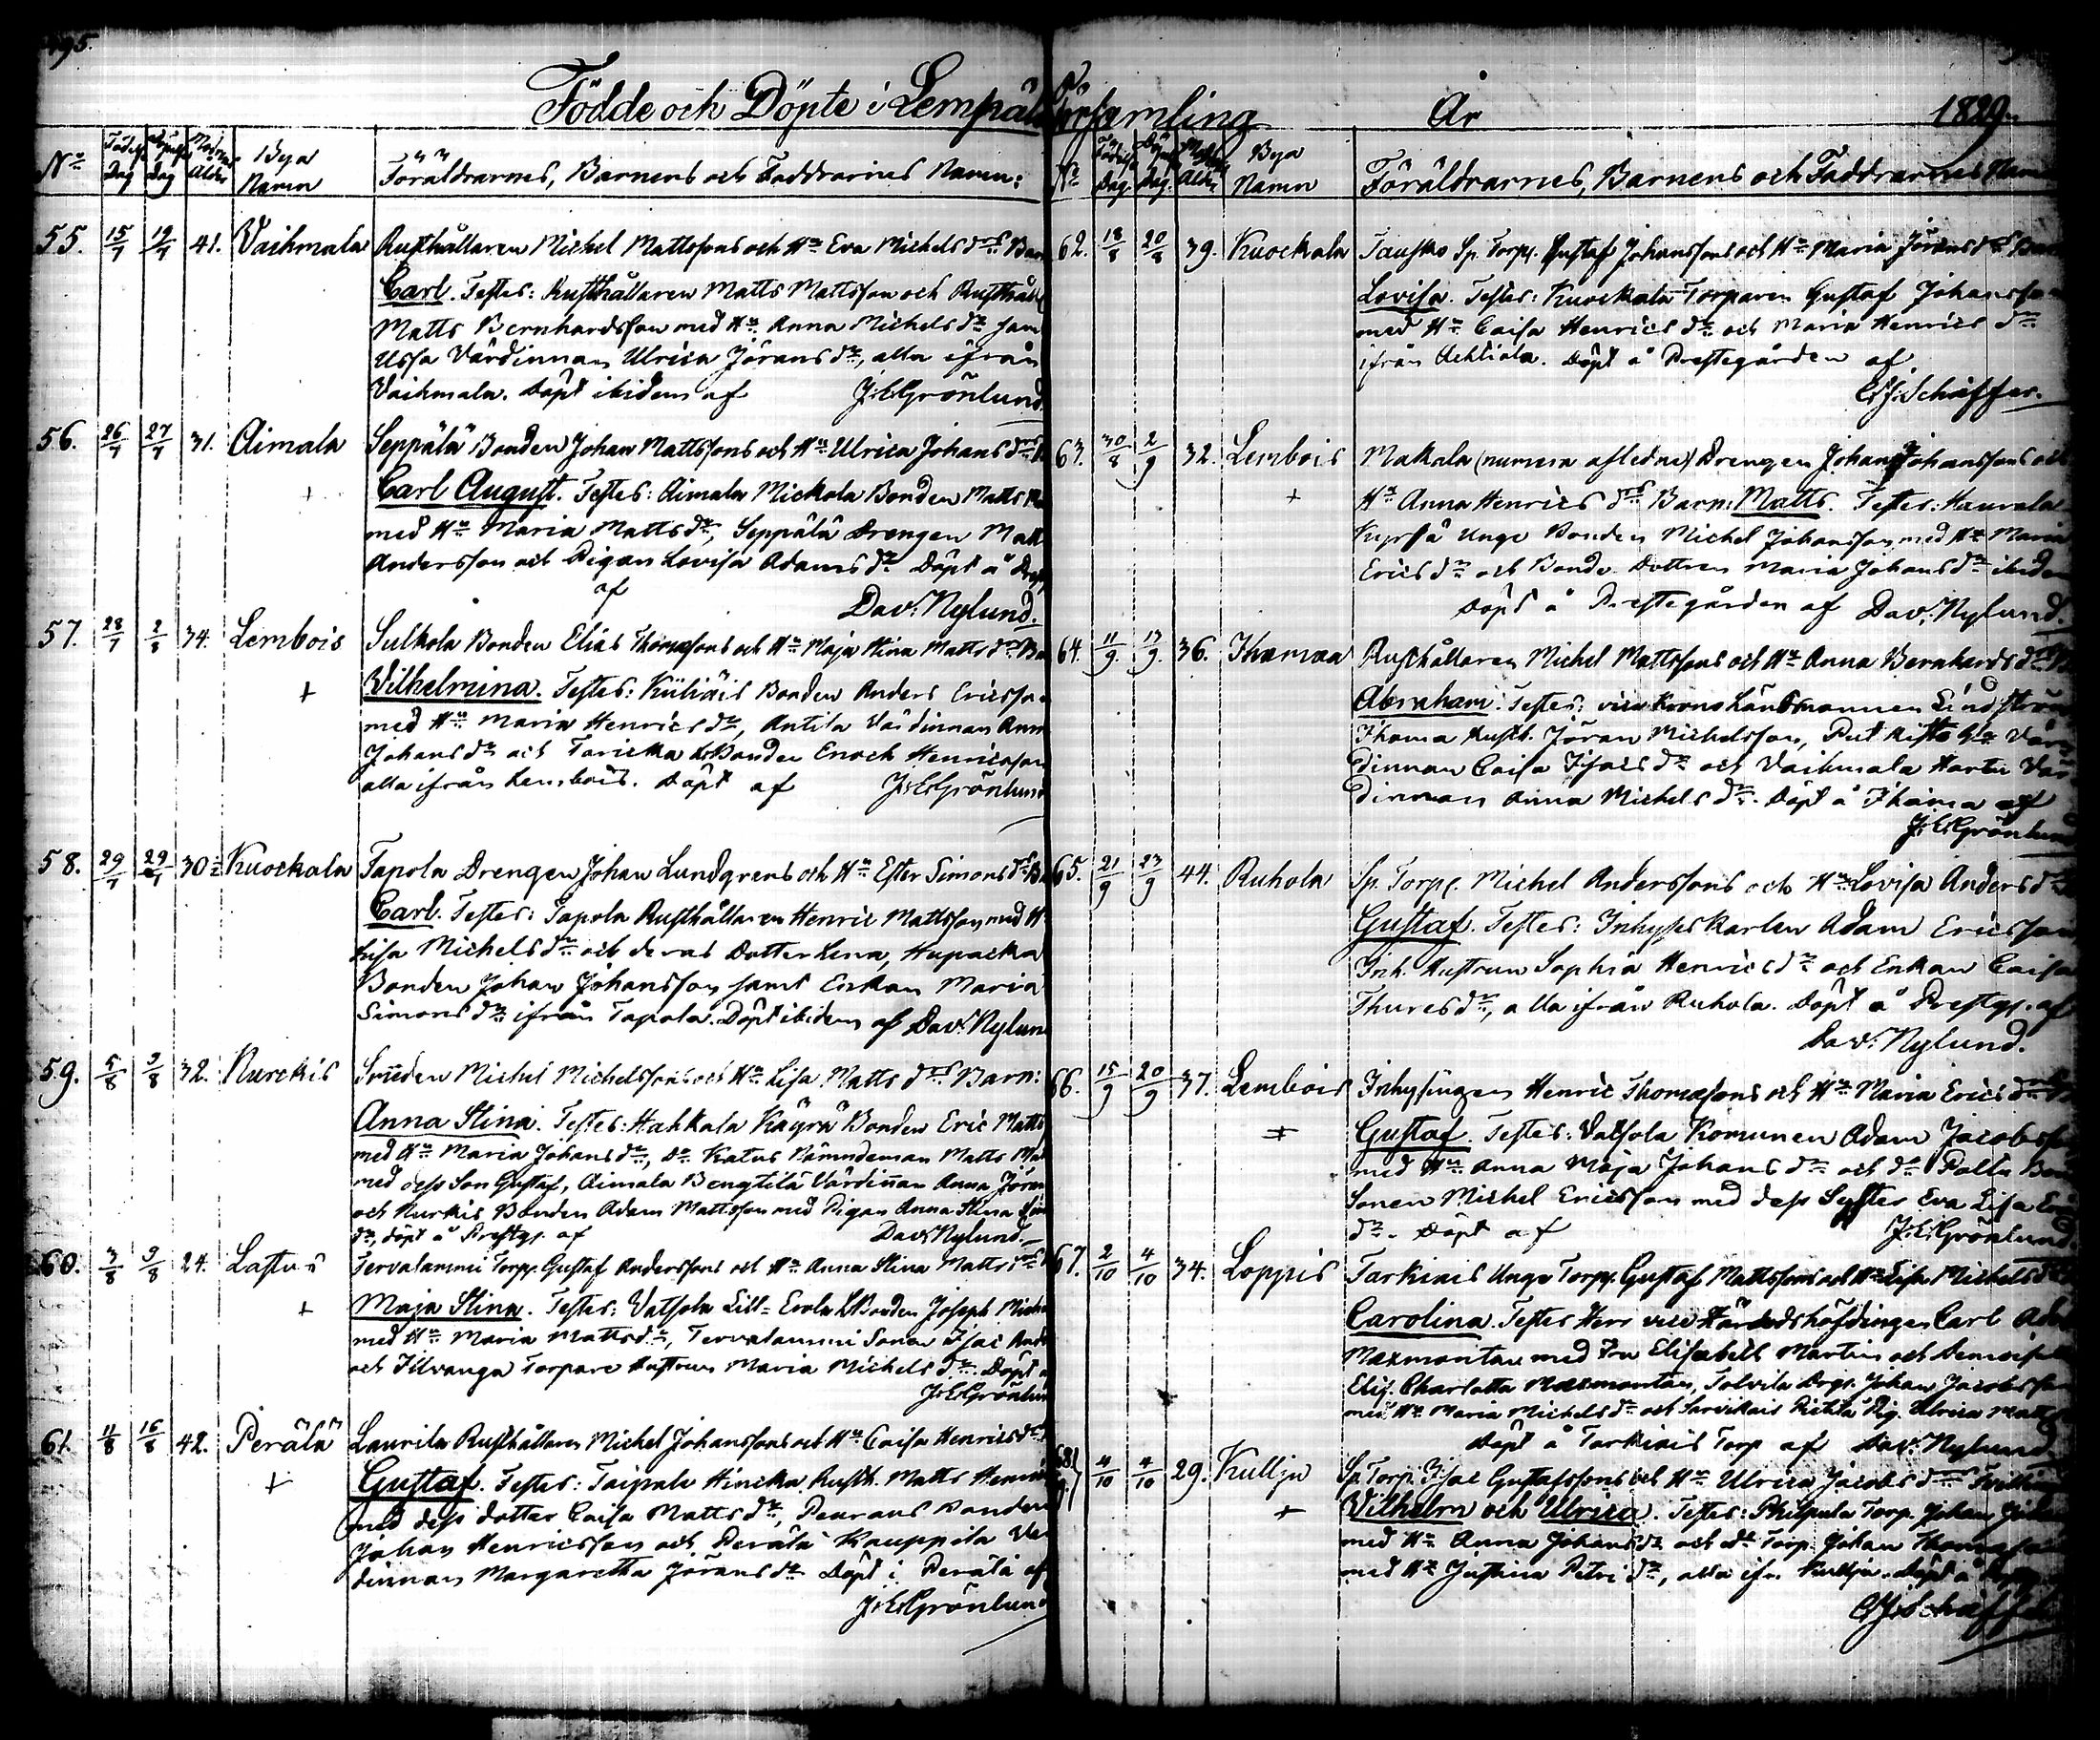 195.
Födde och Döpte i Lempälä Församling År 1829.
No Födelse Dag Döpelse Dag Modrens Ålder Bya Namn Föräldrarnes, Barnens och Faddrarnes Namn:
55. 15/7 19/7 41. Vaihmala Rusthållaren Michel Mattssons och Hu Eva Michels drs Barn
Carl. Testes: Rusthållaren Matts Mattsson och Rusthåll
Matts Bernhardsson med Hu Anna Michels dr sam
Ussa Värdinnan Ulrica Jörans dr, alla ifrån
Vaihmala. Döpt ibidem af J:E:Grönlund.
56. 26/7 27/7 31. Aimala Seppälä Bonden Johan Mattssons och Hu Ulrica Johans drs
+ Carl August. Testes: Aimala Mickola Bonden Matts
med Hu Maria Matts dr, Seppälä Drengen Matt
Andersson och Pigan Lovisa Adams dr Döpt å Prest
af
Dav: Nylund.
57. 28/7 2/8 34. Lembois Sulkola Bonden Elias Thomassons och Hu Maja Stina Matts drs Ba
+ Vilhelmina. Testes: Küliäis Bonden Anders Ericsson
med Hu Maria Henrics dr, Antila Värdinnan Anna
Johans dr och Taricka Bonden Enoch Henricsson
alla ifrån Lembois. Döpt af J:E:Grönlund
58. 29/7 29/7 30 Kuockala Tapola Drengen Johan Lundgrens och Hu Ester Simons drs B
Carl. Testes: Tapola Rusthållaren Henric Mattsson med H
Lisa Michels dr och deras Dotter Lena, Hupacka
Bonden Johan Johansson samt Enkan Maria
Simons dr ifrån Tapola. Döpt ibidem af Dav: Nylun
59. 5/8 9/8 32. Nurckis Smeden Michel Michelssons och Hu Lisa Matts drs Barn:
Anna Stina. Testes: Hahkala Kägrä Bonden Eric Matts
med Hu Maria Johans dr, Do Katus Nämndeman Matts Mat
med dess Son Gustaf, Aimala Bengtilä Värdinnan Anna Jöran
och Nurkis Bonden Adam Mattsson med Pigan Anna Stina
dr, döpt å Prestg. af Dav: Nylund.
60. 3/8 9/8 24. Lastus Tervalammi Torp. Gustaf Anderssons och Hu Anna Stina Matts drs
+ Maja Stina. Testes: Vatsola Lill-Erola Bonden Joseph Miche
med Hu Maria Matts dr, Tervalammi Sonen Isac And
och Ilvanga Torpare Hustrun Maria Michels dr. Döpt a
J:E:Grönlun
61. 11/8 16/8 42. Perälä Laurila Rusthållaren Michel Johanssons och Hu Caisa Henrics drs
+ Gustaf. Testes: Taipale Hincka Rusth. Matts Henric
med dess dotter Caisa Matts dr, Penrans Bonden
Johan Henricsson och Perälä Kauppila Vär
dinnan Margaretha Jörans dr. Döpt i Perälä af
J:E:Grönlund
No Födelse Dag. Döpelse Dag. Ålder Bya Namn Föräldrarnes, Barnens och Faddrarnes Namn
62. 18/8 20/8 39. Kuockala Tausko Sp. Torp. Gustaf Johanssons och Hu Maria Jörans drs Barn
Lovisa. Testes: Kuockala Torparen Gustaf Johansson
med Hu Caisa Henrics dr och Maria Henrics dr
ifrån Ahtiala. Döpt å Prestegården af
C:J: Schäffer.
63. 30/8 2/9 32. Lembois Makala (numera afledne) Drengen Johan Johanssons och
+ Hu Anna Henrics drs Barn: Matts. Testes: Haurala
Kyrsä Unge Bonden Michel Johansson med Hu Maria
Erics dr och Bonde Dottren Maria Johans dr ibidem
Döpt å Prestegården af Dav: Nylund.
64. 11/9 13/9 36. Ihamaa Rusthållaren Michel Mattssons och Hu Anna Bernhards drs
Abraham. Testes: vice Krono Länsmannen Lindström
Ihama Rusth. Jöran Michelsson, Vär
dinnan Caisa Isacs dr och Vaihmala Hartu Vär
dinnan Anna Michels dr. Döpt å Ihama af
J:E:Grönlund
65. 21/9 23/9 44. Ruhola Sp. Torp. Michel Anderssons och Hu Lovisa Anders drs
Gustaf. Testes: Inhyses karlen Adam Ericsson
Inh. Hustrun Sophia Henrics dr och Enkan Caisa
Thures dr, alla ifrån Ruhola. Döpt å Prestg. af
Dav: Nylund.
66. 15/9 20/9 37. Lembois Inhysingen Henric Thomassons och Hu Maria Erics drs
+ Gustaf. Testes: Vatsola Komunen Adam Jacobsson
med Hu Anna Maja Johans dr och do Palla Bon
Sonen Michel Ericsson med dess Syster Eva Lisa Eri
dr. Döpt af J:E:Grönlund.
67. 2/10 4/10 34. Loppis Tarkiais Unge Torp. Gustaf Mattssons och Hu Lisa Michels drs
Carolina. Testes Herr vice Häradshöfdingen Carl Adol
Maxmontan med Fru Elisabeth Martin och Demoiselle
Elis. Charlotta Maxmontan, Tolvila Drgn. Johan Jacobsson
med Hu Maria Michels dr och Sarvikais Pietilä Pig. Ulrica Matts
Döpt å Tarkiais Torp af Dav: Nylund.
68 4/10 4/10 29. Kullju Sp. Torp. Isac Gustafssons och Hu Ulrica Jacobs drs Tvilling
+ Vilhelm och Ulrica. Testes: Philpula Torp. Johan
med Hu Anna Johans dr och do Torp. Johan Thomasson
med Hu Justina Petri dr, alla ifr. Kullju. Döpt å
C:J: Schäffer